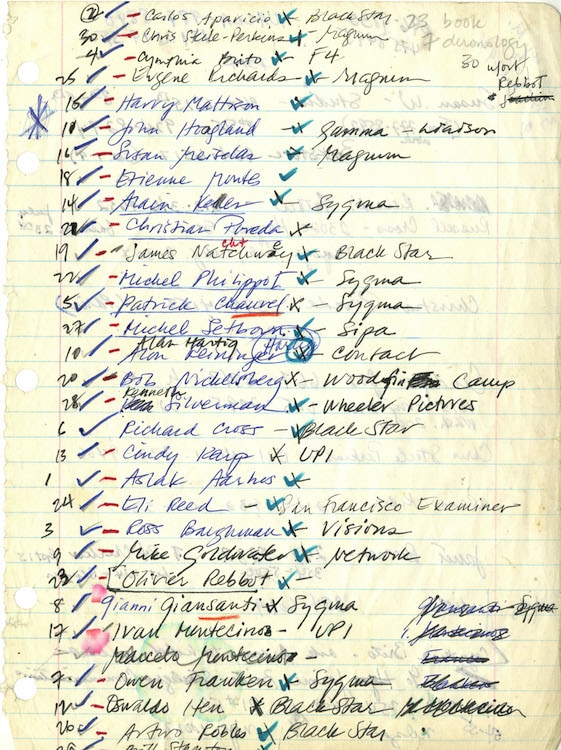 2 - Carlos Aparicio X Black Star 23 book
30 - Chris Stele-Perkins X - Magnum 7 chronology
4 - Cynthia Brito - X F4 30 w/out
25 - Eugene Richards - X - Magnum Rebbot
16 - Harry Mattison X
11 - John Hoagland - X Gamma - Liaison
16 - Susan Meiselas - Magnum
18 - Etienne Montes
14 - Alain Keler X - Sygma
21 - Christian Poveda X
19 - James Natchwey X Black Star
cht
22 - Michel Philippot X Sygma
5 - Patrick Chauvel X - Sygma
27 - Michel Setboun X - Sipa
Alan Hartig
10 - Alon Reininger X - Contact
20 - Bob Nickelsberg X - Woodfin Camp
Kenneth
28 - Silverman X - Wheeler Pictures
6 Richard Cross - Black Star
13 - Cindy Karp X UPI
1 - Aslak Aarhus X
24 - Eli Reed - X San Francisco Examiner
3 - Ross Baughman X Visions
9 - Mike Goldwater X - Network
23 - [Oliver Rebbot -
8 gianni giansanti X Sygma giansanti - Sygma
17 - Ivan Montecinos - UPI
Marcelo Montecinos -
7 - Owen Franken - Sygma
12 - Oswaldo Hen X Black Star
26 - Arturo Robles X Black Star